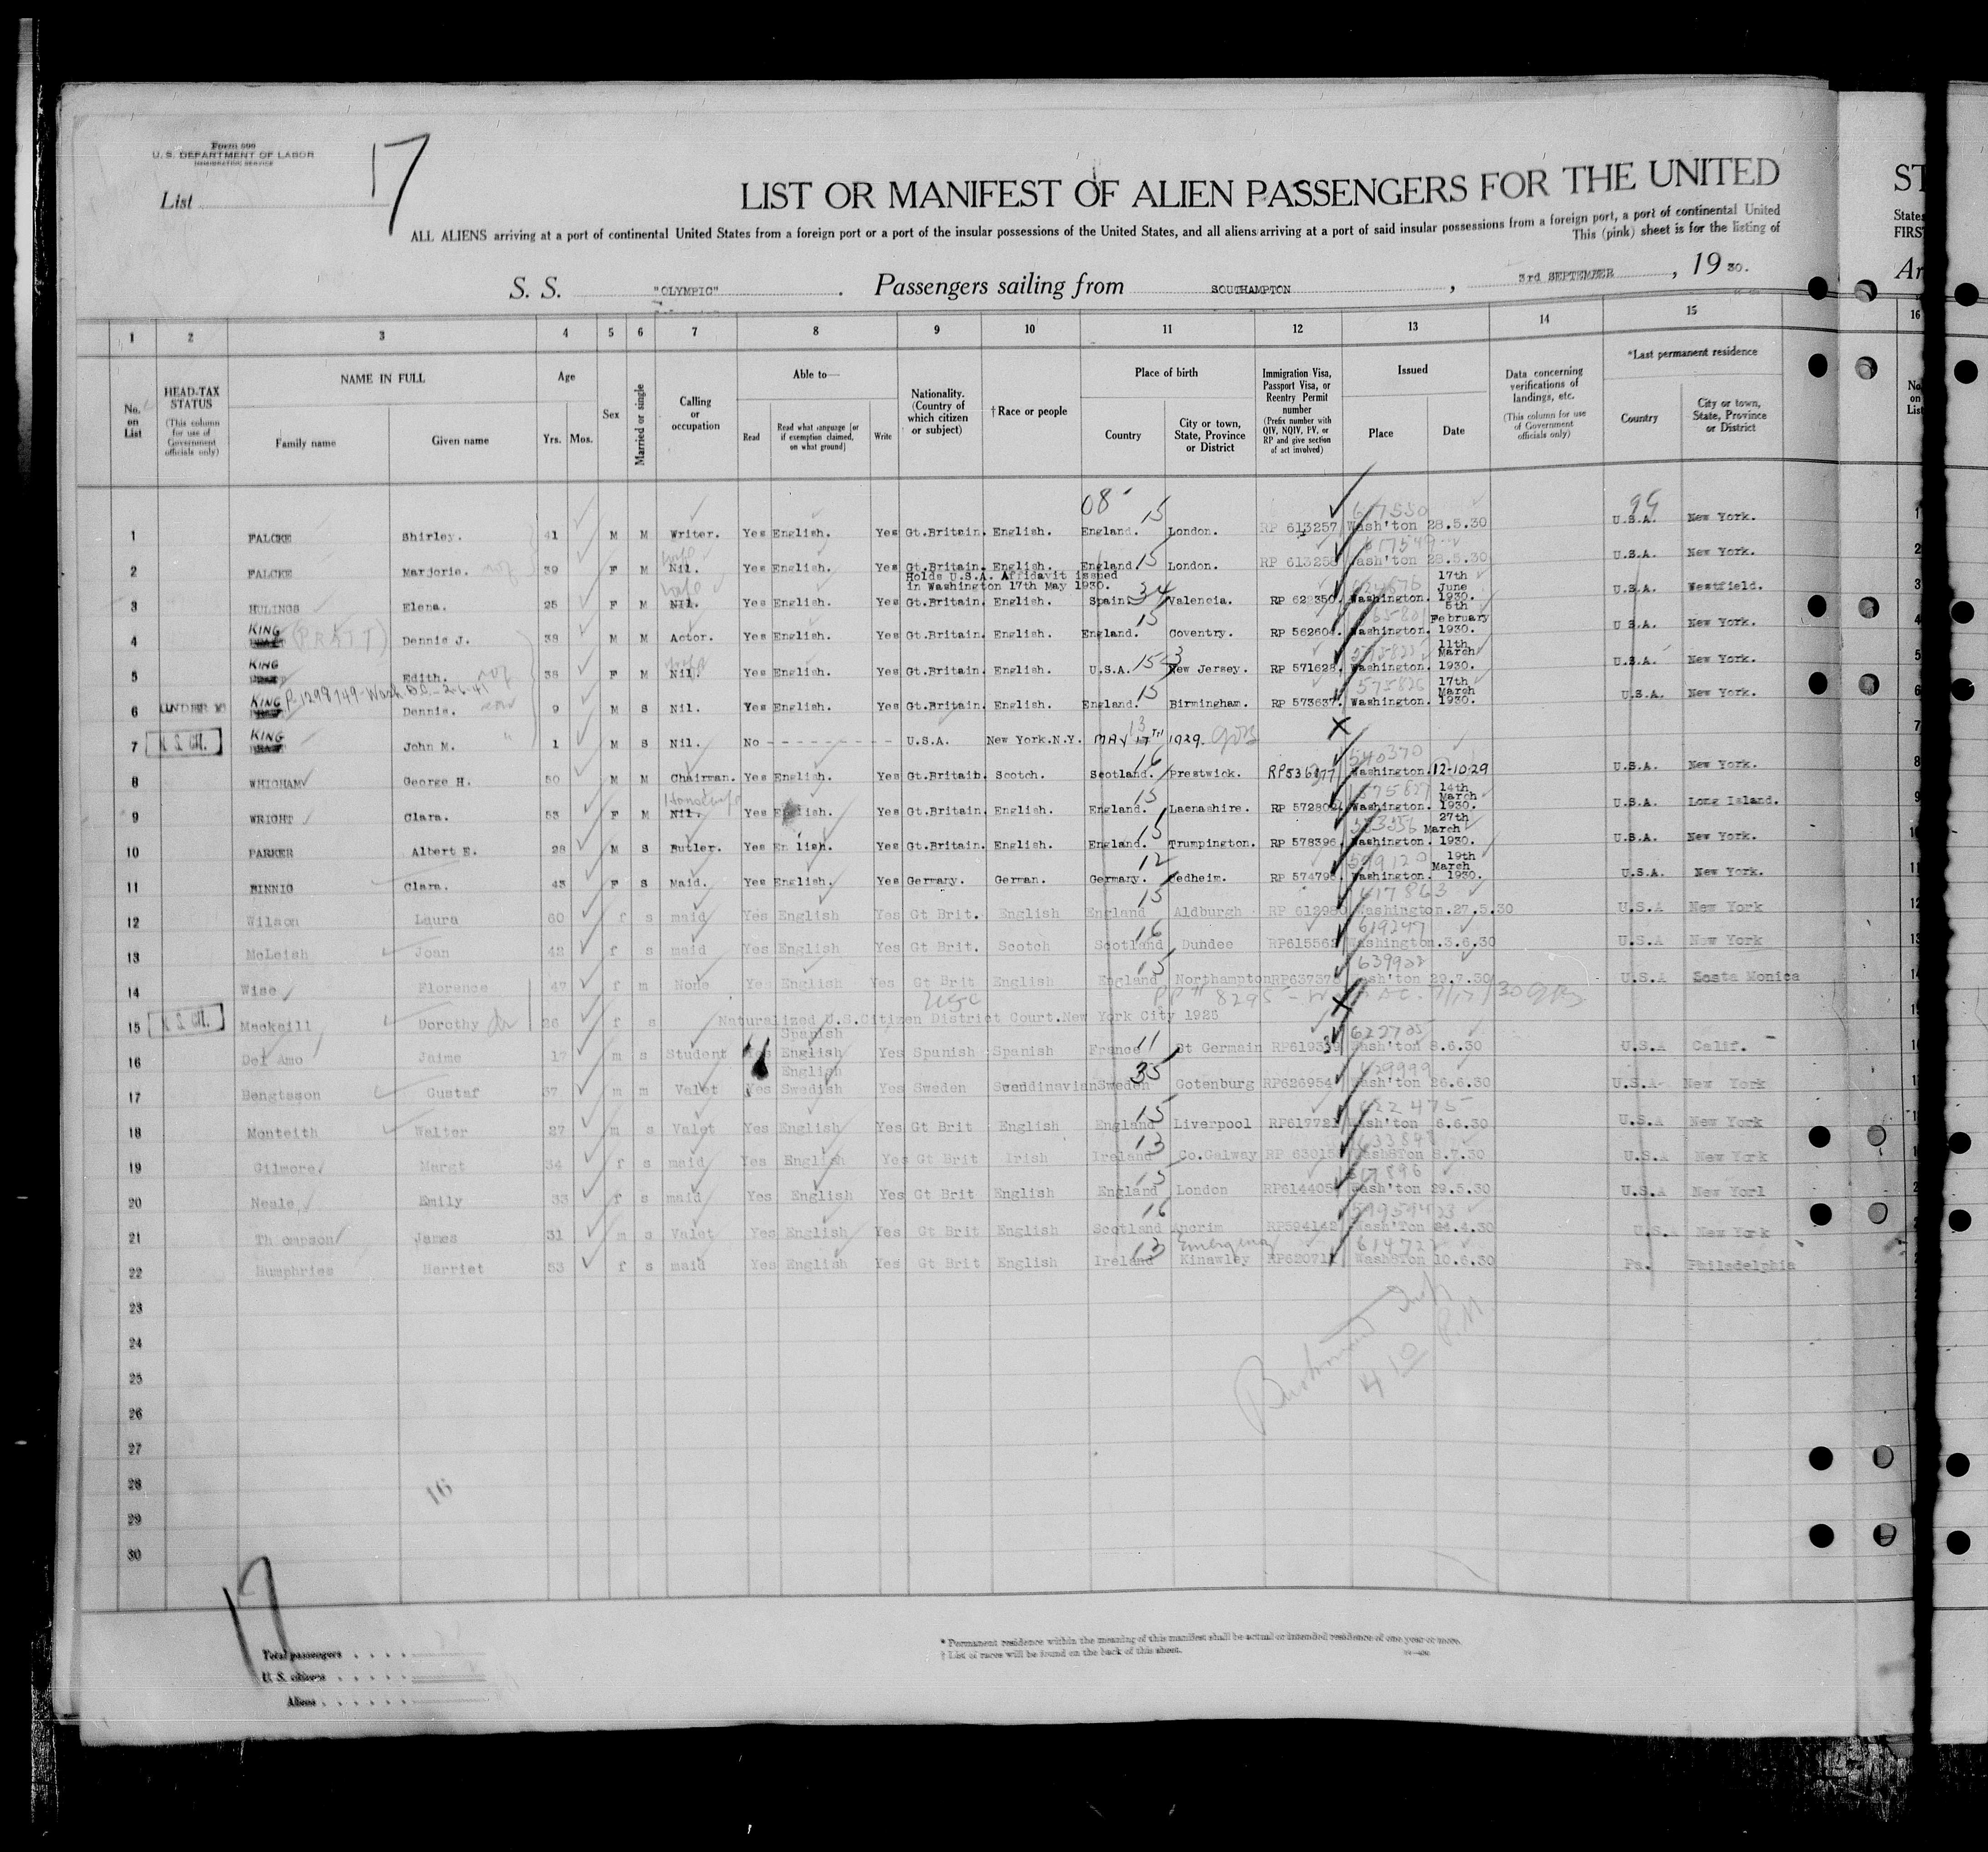 Form 500
U. S. DEPARTMENT OF LABOR
IMMIGRATION SERVICE
List 17
LIST OR MANIFEST OF ALIEN PASSENGERS FOR THE UNITED ST
ALL ALIENS arriving at a port of continental United States from a foreign port or a port of the insular possessions of the United States, and all aliens arriving at a port of said insular possessions from a foreign port, a port of continental United States
This (pink) sheet is for the listing of FIRS
S. S. "OLYMPIC". Passengers sailing from SOUTHAMPTON, 3rd SEPTEMBER, 19 30. Ar
1 2 3 4 5 6 7 8 9 10 11 12 13 14 15 16
No. on List
HEAD-TAX STATUS
(This column for use of Government officials only)
NAME IN FULL
Family name
Given name
Age
Yrs. Mos.
Sex
Married or single
Calling or occupation
Able to—
Read
Read what language [or if exemption claimed, on what ground]
Write
Nationality. (Country of which citizen or subject)
† Race or people
Place of birth
Country
City or town, State, Province or District
Immigration Visa, Passport Visa, or Reentry Permit number
(Prefix number with QIV, NQIV, PV, or RP and give section of act involved)
Issued
Place
Date
Data concerning verifications of landings, etc.
(This column for use of Government officials only)
*Last permanent residence
Country
City or town, State, Province or District
No. on List
08 15 617550 99
1 FALCKE Shirley. 41 M M Writer. Yes English. Yes Gt.Britain. English. England. London. RP 613257 Wash'ton 28.5.30 U.S.A. New York. 1
wife 15 617549
2 FALCKE Marjorie. 39 F M Nil. Yes English. Yes Gt.Britain. English. England London. RP 613258 Wash'ton 28.5.30 U.S.A. New York. 2
Holds U.S.A. Affidavit issued
in Washington 17th May 1930.
wife 34
3 HULINGS Elena. 25 F M Nil. Yes English. Yes Gt.Britain. English. Spain. Valencia. RP 622350. Washington. 17th June 1930. U.S.A. Westfield. 3
15
4 KING (PRATT) Dennis J. 38 M M Actor. Yes English. Yes Gt.Britain. English. England. Coventry. RP 562604. Washington. 5th February 1930. U.S.A. New York. 4
wife
5 KING Edith. 38 F M Nil. Yes English. Yes Gt.Britain. English. U.S.A. New Jersey. RP 571628. Washington. 11th March 1930. U.S.A. New York. 5
15 575826
6 UNDER 16 KING Dennis. 9 M S Nil. Yes English. Yes Gt.Britain. English. England. Birmingham. RP 573637. Washington. 17th March 1930. U.S.A. New York. 6
7 KING John M. 1 M S Nil. No - - - - - - - - - U.S.A. New York.N.Y. MAY 17TH 1929. 7
16 540370
8 WHIGHAM George H. 50 M M Chairman. Yes English. Yes Gt.Britaib. Scotch. Scotland. Prestwick. Washington. 12-10-29 U.S.A. New York. 8
15 575827
9 WRIGHT Clara. 53 F M Nil. Yes English. Yes Gt.Britain. English. England. Lacnashire. RP 572802. Washington. 14th March 1930. U.S.A. Long Island. 9
15
10 PARKER Albert E. 28 M S Butler. Yes En lish. Yes Gt.Britain. English. England. Trumpington. RP 578396. Washington. 27th March 1930. U.S.A. New York. 10
12 599120
11 BINNIG Clara. 43 F S Maid. Yes English. Yes Germany. German. Germany. Jedheim. RP 574795. Washington. 19th March 1930. U.S.A. New York. 11
15 617863
12 Wilson Laura 60 f s maid Yes English Yes Gt Brit. English England Aldburgh RP 612980 Washington.27.5.30 U.S.A New York 12
16 619247
13 McLeish Joan 42 f s maid Yes English Yes Gt Brit. Scotch Scotland Dundee RP615562 Washington.3.6.30 U.S.A New York 13
15 639902
14 Wise Florence 47 f m None Yes English Yes Gt Brit English England Northampton RP637378 Wash'ton 29.7.30 U.S.A Santa Monica 14
USC
15 Mackaill Dorothy 26 f s Naturalized U.S.Citizen District Court.New York City 1926
Spanish 11 622705
16 Del Amo Jaime 17 m s Student Yes English Yes Spanish Spanish France St Germain RP619339 Wash'ton 8.6.30 U.S.A Calif.
English 35 629999
17 Bengtsson Gustaf 37 m m Valet Yes Swedish Yes Sweden Scandinavian Sweden Gotenburg RP626954 Wash'ton 26.6.30 U.S.A New York
15 622475
18 Monteith Walter 27 m s Valet Yes English Yes Gt Brit English England Liverpool RP617721 Wash'ton 6.6.30 U.S.A New York
13 633848
19 Gilmore Margt 34 f s maid Yes English Yes Gt Brit Irish Ireland Co.Galway RP 63015 WashSTon 8.7.30 U.S.A New York
15 617896
20 Neale Emily 33 f s maid Yes English Yes Gt Brit English England London RP614405 Wash'ton 29.5.30 U.S.A New Yorl
16
21 Th ompson James 31 m s Valet Yes English Yes Gt Brit English Scotland Ancrim RP594142 Wash'Ton 24.4.30 U.S.A New York
13 614722
22 Humphries Harriet 53 f s maid Yes English Yes Gt Brit English Ireland Kinawley RP62071 WashSTon 10.6.30 Pa. Philadelphia
23
24
25
26
27
28
29
30
16
17
4 10 P.M
Total passengers
U. S. citizens
Aliens
* Permanent residence within the meaning of this manifest shall be actual or intended residence of one year or more.
† List of races will be found on the back of this sheet.